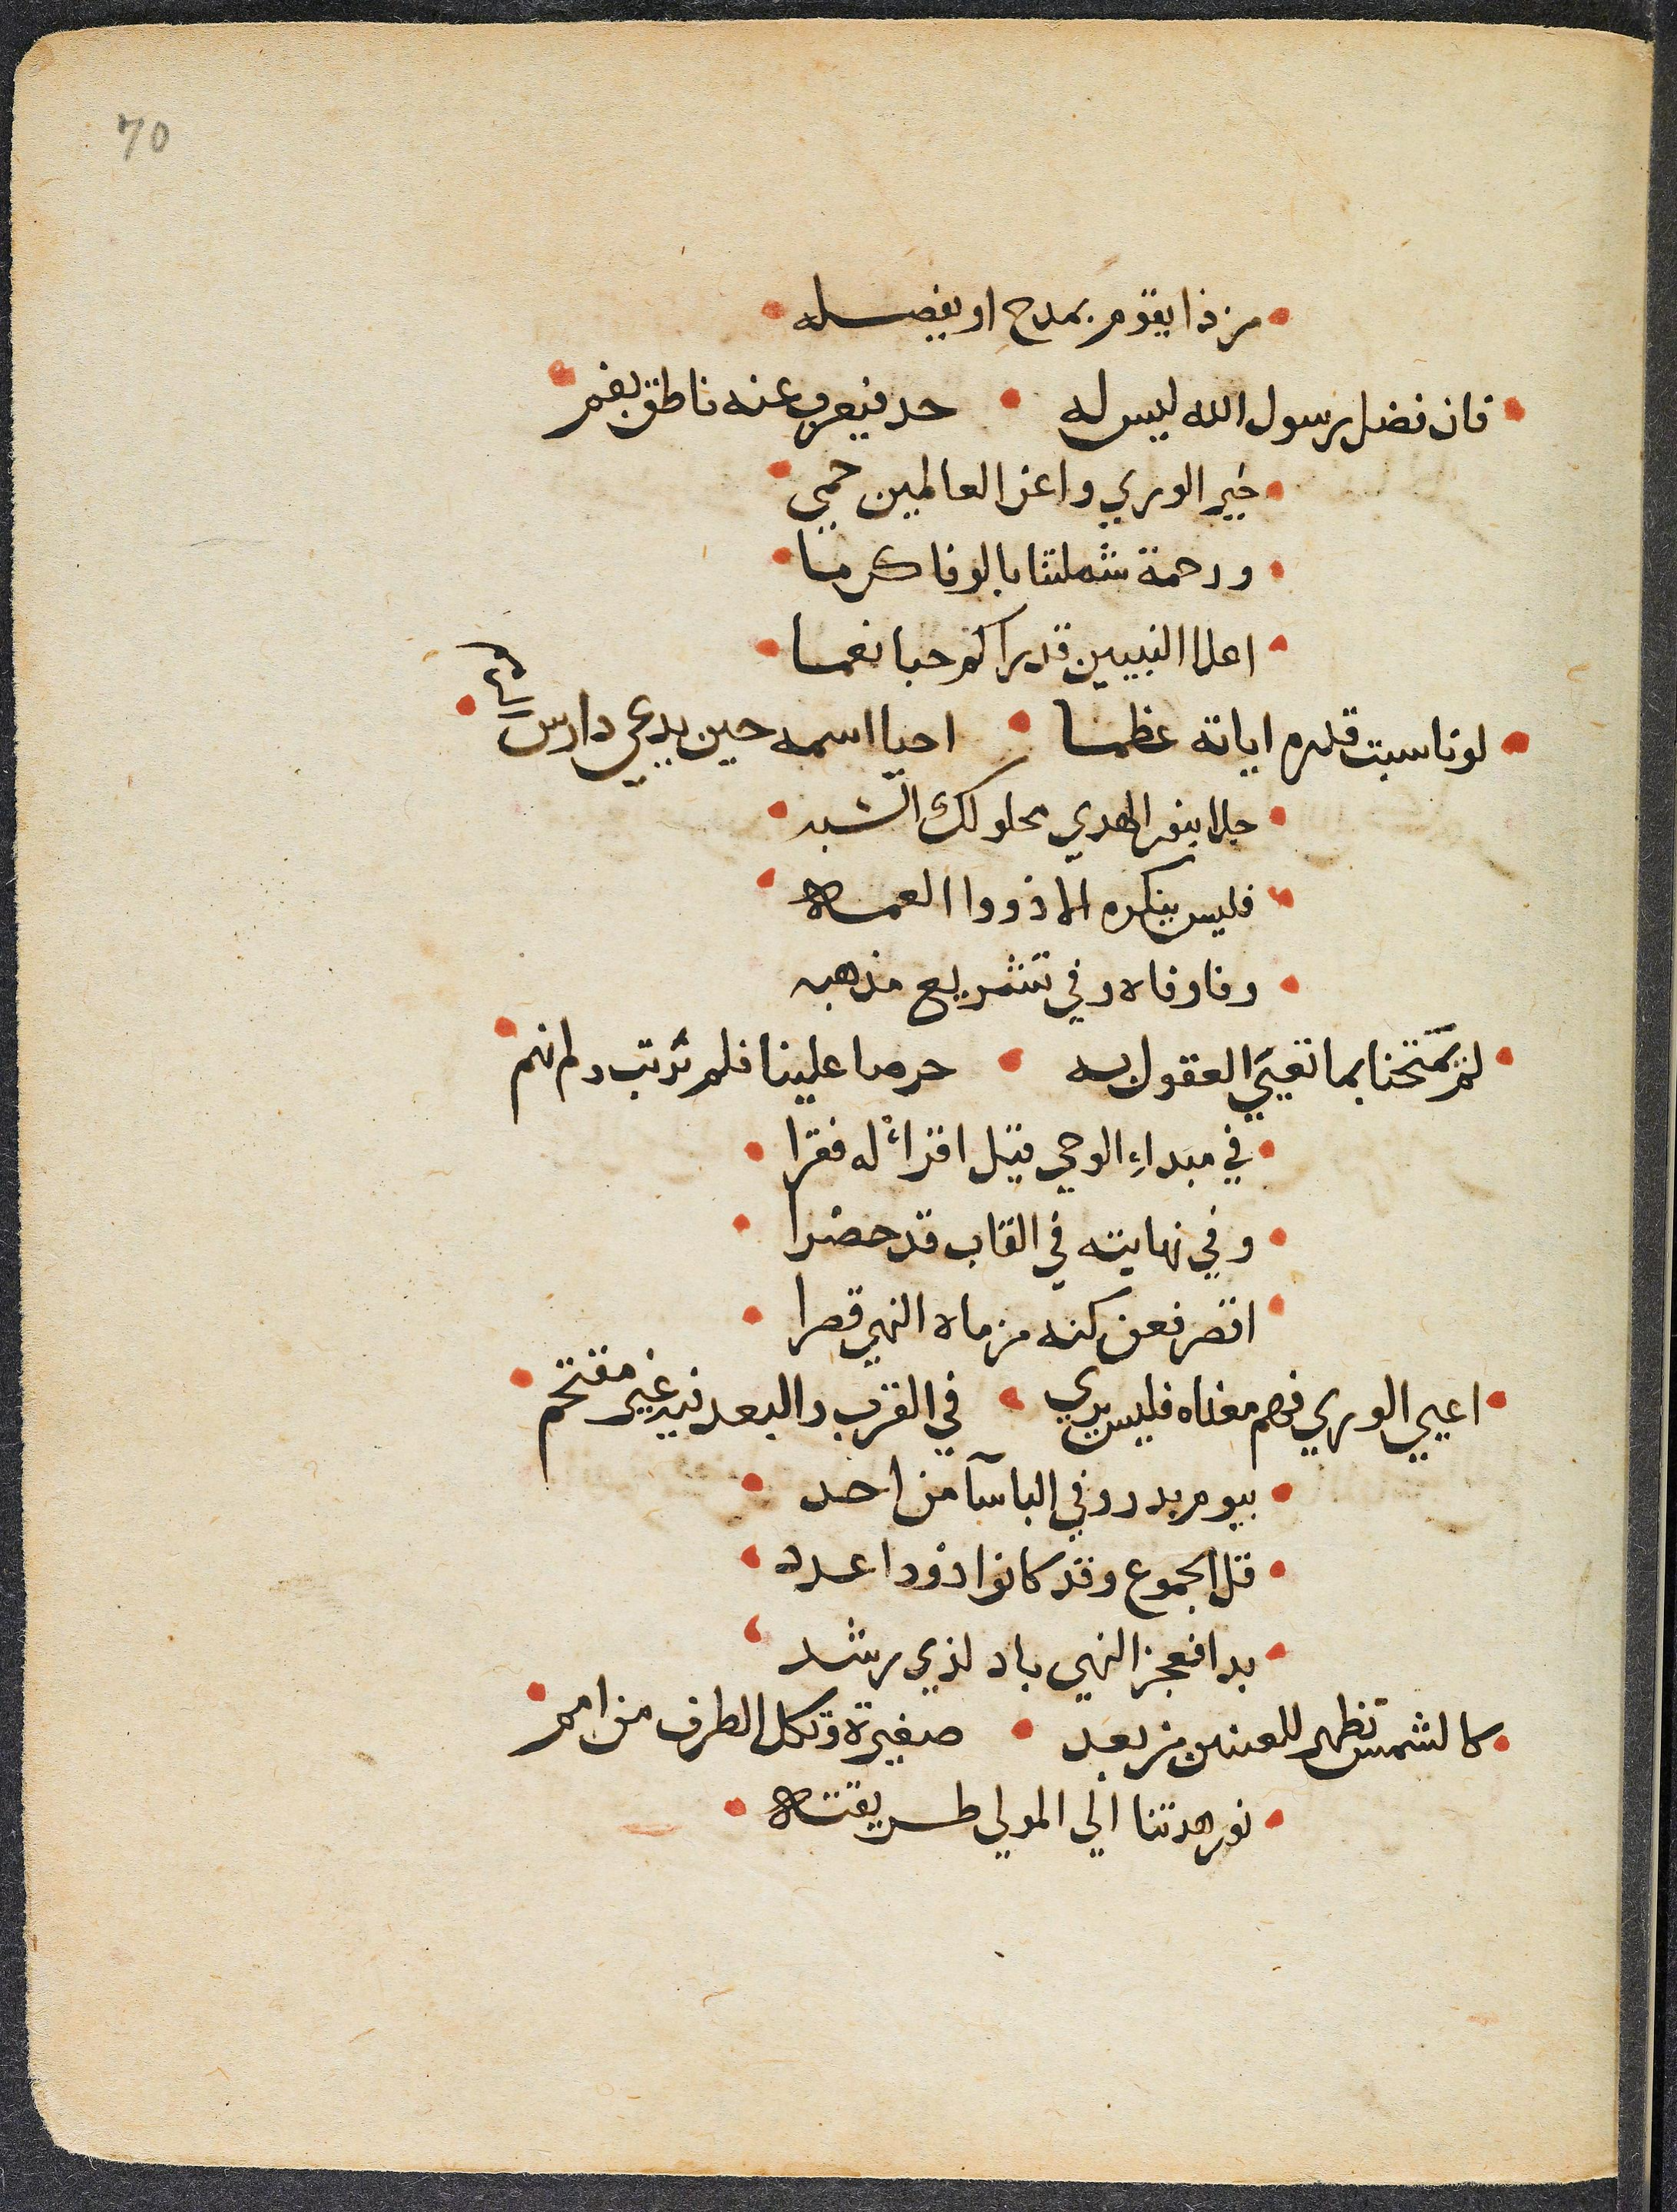 70
من ذا يقوم بمدح او يفصله
فان فضل رسول الله ليس له • حد فيعرب عنه ناطق بفم
خير الوري واعز العالمين حمي
ورحمة شملتنا بالوفا كرما
اعلا النبيين قدرا كم حبا نعما
لو ناسبت قدره اياته عظما • احيا اسمه حين يدعي دارس الرمم
جلا بنور الهدي محلولك الشبه
فليس ينكره الا ذووا العمه
وفا وفاه وفي تشريع مذهبه
لم يمتحنا بما تعيي العقول به • حرصا علينا فلم نرتب ولم نهم
في مبداء الوحي قيل اقرأ له فقرا
وفي نهايته في القاب قد حضرا
اقصر فعن كنه مرماه النهي قصرا
اعيي الوري فهم معناه فليس يري • في القرب والبعد فيه غير مقتحم
بيوم بدر وفي الباسآ من احد
قل الجموع وقد كانوا ذووا عدد
بدا فعجز النهي باد لذي رشد
كالشمس تظهر للعينين من بعد • صغيرة وتكل الطرف من امم
نور هدتنا الي المولي طريقته